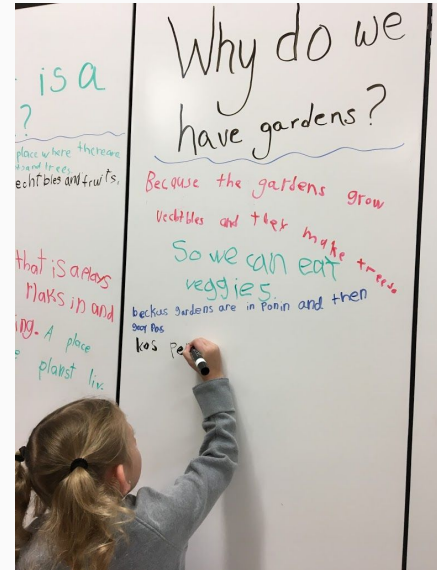 is a
?
place where there are
and trees.
echtbles and fruits.
that is a plays
Maks in and
ing. A place
planst liv.
Why do we
have gardens?
Because the gardens grow
Vechtbles and they make trees.
So we can eat
veggies.
beckus gardens are in Ponin and then
kos Pe